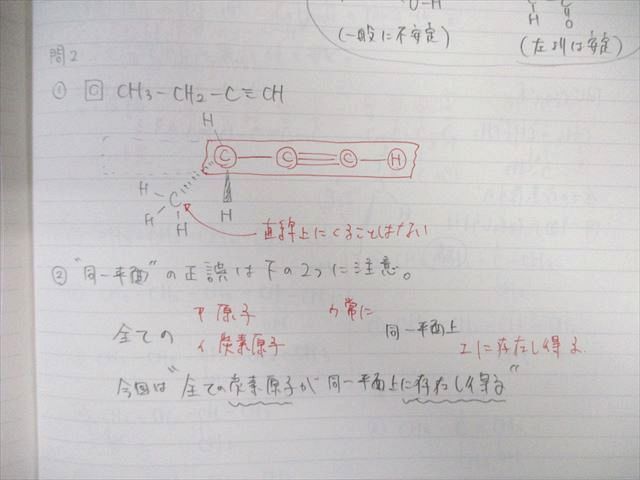 O-H
H
O
(一般に不安定)
(左よりは安定)
問2
① C CH3-CH2-C≡CH
H
C C C H
H C H H
H
直線上にくることはない
② "同一平面"の正誤は下の2つに注意。
全ての ア 原子 ウ 常に 同一平面上
イ 炭素原子 エ に存在し得る
今回は"全ての炭素原子が同一平面上に存在し得る"